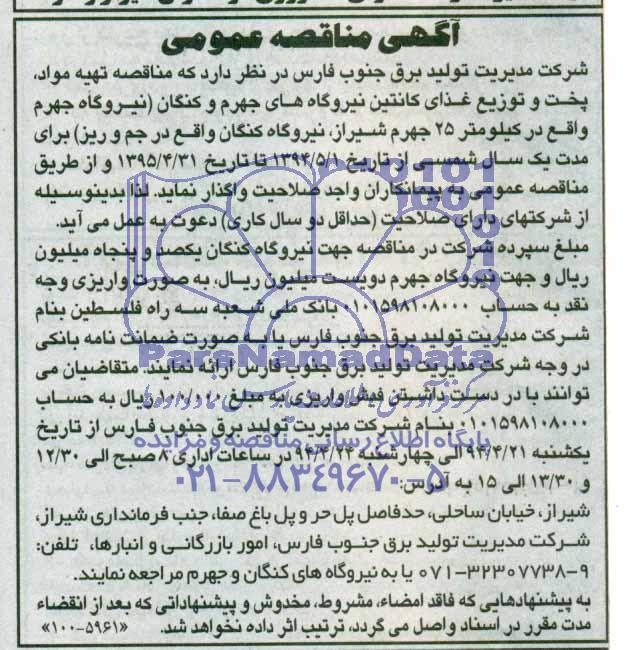 آگهی مناقصه عمومی
شرکت مدیریت تولید برق جنوب فارس در نظر دارد که مناقصه تهیه مواد،
پخت و توزیع غذای کانتین نیروگاه های جهرم و کنگان (نیروگاه جهرم
واقع در کیلومتر ۲۵ جهرم شیراز، نیروگاه کنگان واقع در جم و ریز) برای
مدت یک سال شمسی از تاریخ ۱۳۹۴/۵/۱ تا تاریخ ۱۳۹۵/۴/۳۱ و از طریق
مناقصه عمومی به پیمانکاران واجد صلاحیت واگذار نماید. لذا بدینوسیله
از شرکتهای دارای صلاحیت (حداقل دو سال کاری) دعوت به عمل می آید.
مبلغ سپرده شرکت در مناقصه جهت نیروگاه کنگان یکصد و پنجاه میلیون
ریال و جهت نیروگاه جهرم دویست میلیون ریال، به صورت واریزی وجه
نقد به حساب ۰۱۰۱۵۹۸۱۰۸۰۰۰ بانک ملی شعبه سه راه فلسطین بنام
شرکت مدیریت تولید برق جنوب فارس یا به صورت ضمانت نامه بانکی
ParsNamadData
در وجه شرکت مدیریت تولید برق جنوب فارس ارائه نمایند. متقاضیان می
توانند با در دست داشتن فیش واریزی به مبلغ ۱۰۰/۰۰۰ ریال به حساب
۰۱۰۱۵۹۸۱۰۸۰۰۰ بنام شرکت مدیریت تولید برق جنوب فارس از تاریخ
پایگاه اطلاع رسانی مناقصه و مزایده
یکشنبه ۹۴/۴/۲۱ الی چهارشنبه ۹۴/۴/۲۴ در ساعات اداری ۸ صبح الی ۱۲/۳۰
۰۲۱-۸۸۳۴۹۶۷۰-۵
و ۱۳/۳۰ الی ۱۵ به آدرس:
شیراز، خیابان ساحلی، حدفاصل پل حر و پل باغ صفا، جنب فرمانداری شیراز،
شرکت مدیریت تولید برق جنوب فارس، امور بازرگانی و انبارها، تلفن:
۰۷۱-۳۲۳۰۷۷۳۸-۹ یا به نیروگاه های کنگان و جهرم مراجعه نمایند.
به پیشنهادهایی که فاقد امضاء، مشروط، مخدوش و پیشنهاداتی که بعد از انقضاء
مدت مقرر در اسناد واصل می گردد، ترتیب اثر داده نخواهد شد. «۱۰۰-۵۹۶۱»